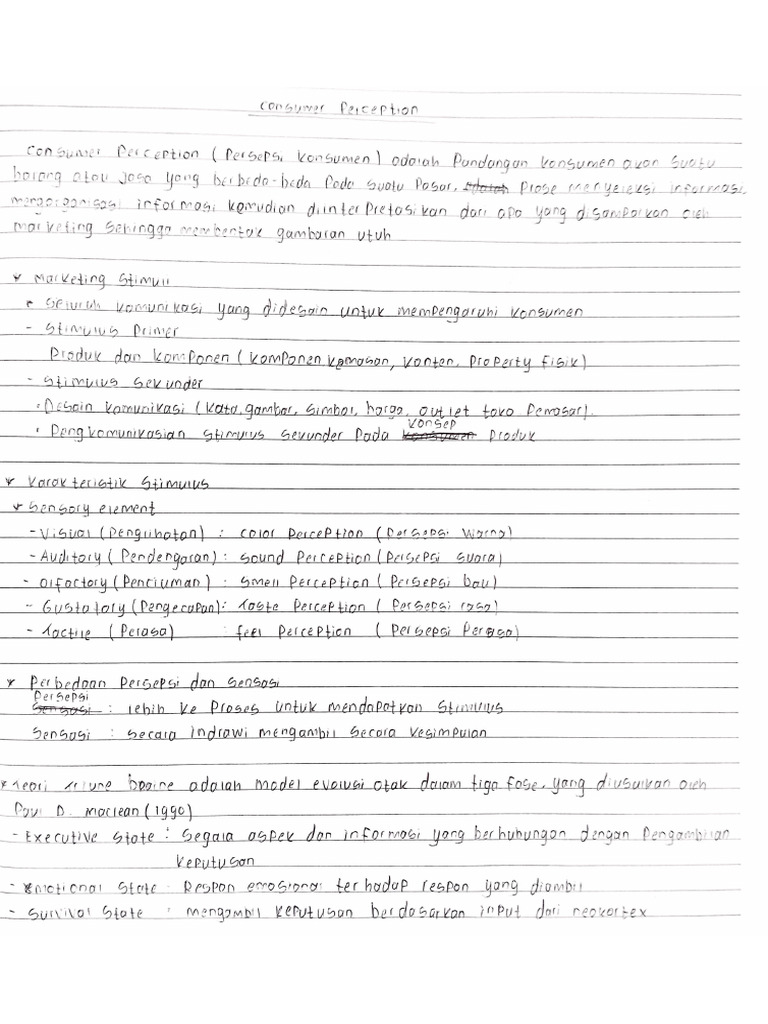 Consumer Perception
Consumer Perception (Persepsi Konsumen) adalah Pandangan konsumen akan suatu
barang atau jasa yang berbeda-beda Pada suatu Pasar, adalah Prose menyeleksi informasi,
mengorganisasi informasi kemudian diinterpretasikan dari apa yang disampaikan oleh
marketing sehingga membentuk gambaran utuh
* Marketing Stimuli
• Seluruh komunikasi yang didesain untuk mempengaruhi konsumen
- Stimulus Primer
Produk dan komponen (komponen kemasan, konten, Property fisik)
- Stimulus Sekunder
• Desain komunikasi (kata, gambar, simbol, harga, outlet toko Pemasar).
• Pengkomunikasian stimulus sekunder Pada konsumen konsep Produk
* Karakteristik Stimulus
* Sensory element
- Visual (Penglihatan) : color Perception (Persepsi Warna)
- Auditory (Pendengaran) : sound Perception (Persepsi suara)
- Olfactory (Penciuman) : Smell Perception (Persepsi bau)
- Gustatory (Pengecapan) : Taste Perception (Persepsi rasa)
- Tactile (Perasa) : feel Perception (Persepsi Perasa)
* Perbedaan Persepsi dan Sensasi
Sensasi Persepsi : lebih ke Proses untuk mendapatkan Stimulus
Sensasi : secara indrawi mengambil secara kesimpulan
* Teori Triune braine adalah model evolusi otak dalam tiga fase, yang diusulkan oleh
Paul D. Maclean (1990)
- Executive State : Segala aspek dan informasi yang berhubungan dengan Pengambilan
keputusan
- Emotional State : Respon emosional terhadap respon yang diambil
- Survival State : mengambil keputusan berdasarkan input dari neokortex